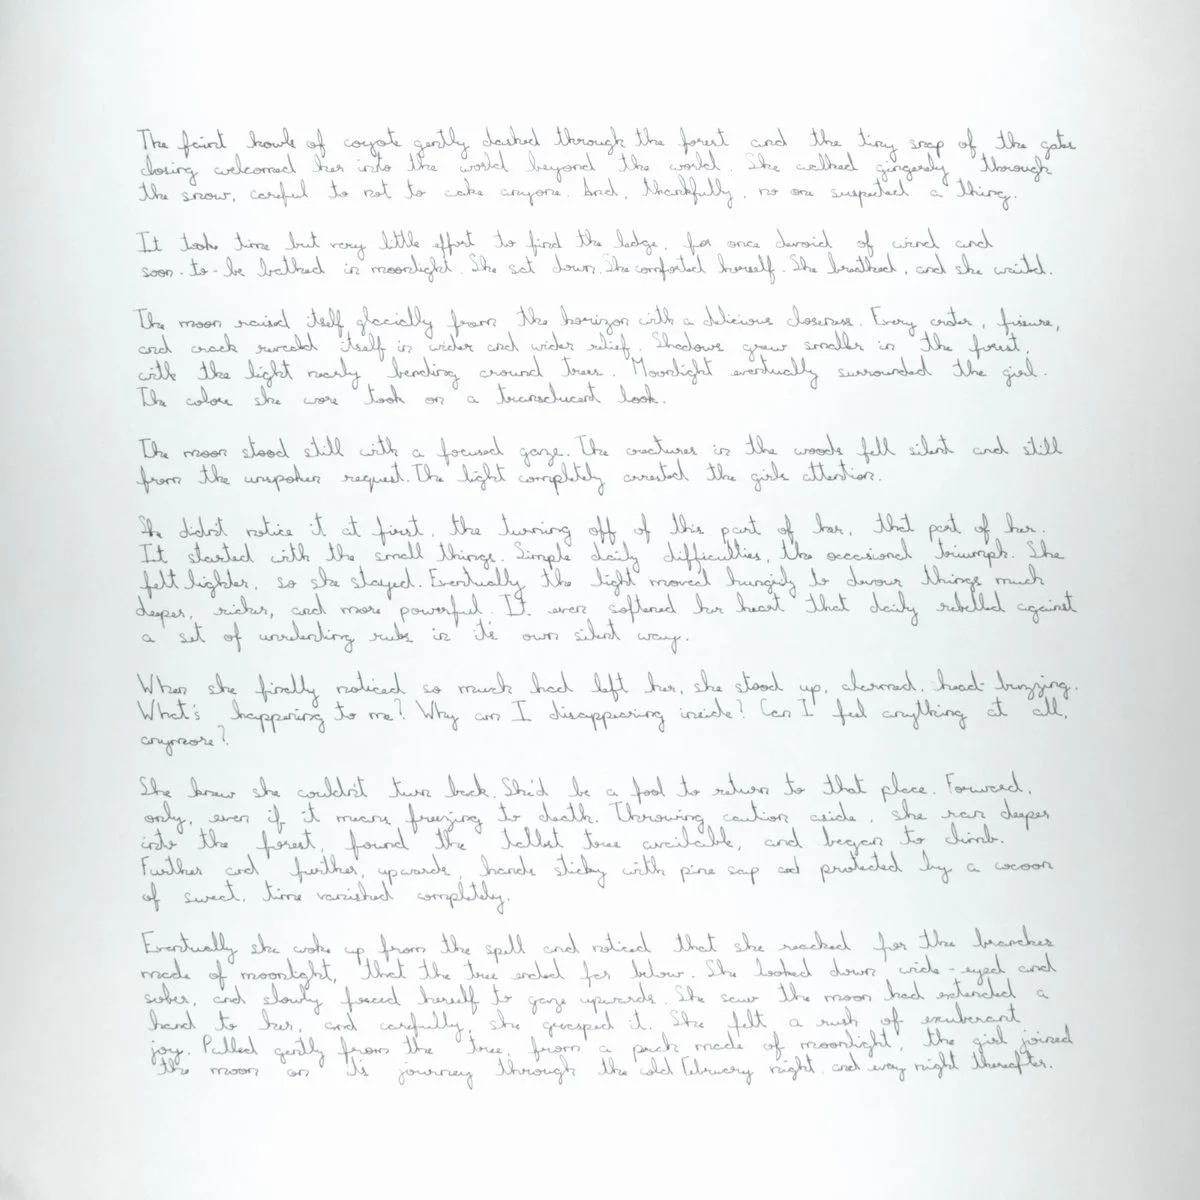 The faint howls of coyote gently dashed through the forest and the tiny snap of the gates
closing welcomed her into the world beyond the world. She walked gingerly through
the snow, careful to not to wake anyone. And, thankfully, no one suspected a thing.
It took time but very little effort to find the ledge, for once devoid of wind and
soon-to-be bathed in moonlight. She sat down. She comforted herself. She breathed, and she waited.
The moon raised itself glacially from the horizon with a delicious closeness. Every crater, fissure,
and crack revealed itself in wider and wider relief. Shadows grew smaller in the forest,
with the light nearly bending around trees. Moonlight eventually surrounded the girl.
The colors she wore took on a translucent look.
The moon stood still with a focused gaze. The creatures in the woods fell silent and still
from the unspoken request. The light completely arrested the girls attention.
She didn't notice it at first, the turning off of this part of her, that part of her.
It started with the small things. Simple daily difficulties, the occasional triumph. She
felt lighter, so she stayed. Eventually the light moved hungrily to devour things much
deeper, richer, and more powerful. It even softened her heart that daily rebelled against
a set of unrelenting rules in it's own silent way.
When she finally noticed so much had left her, she stood up, alarmed, head-buzzing.
What's happening to me? Why am I disappearing inside? Can I feel anything at all,
anymore?
She knew she couldn't turn back. She'd be a fool to return to that place. Forward,
only, even if it means freezing to death. Throwing caution aside, she ran deeper
into the forest, found the tallest tree available, and began to climb.
Further and further, upwards, hands sticky with pine sap and protected by a cocoon
of sweat, time vanished completely.
Eventually she woke up from the spell and noticed that she reached for the branches
made of moonlight, that the tree ended far below. She looked down wide-eyed and
sober, and slowly forced herself to gaze upwards. She saw the moon had extended a
hand to her, and carefully, she grasped it. She felt a rush of exuberant
joy. Pulled gently from the tree, from a perch made of moonlight, the girl joined
the moon on its journey through the cold February night, and every night thereafter.